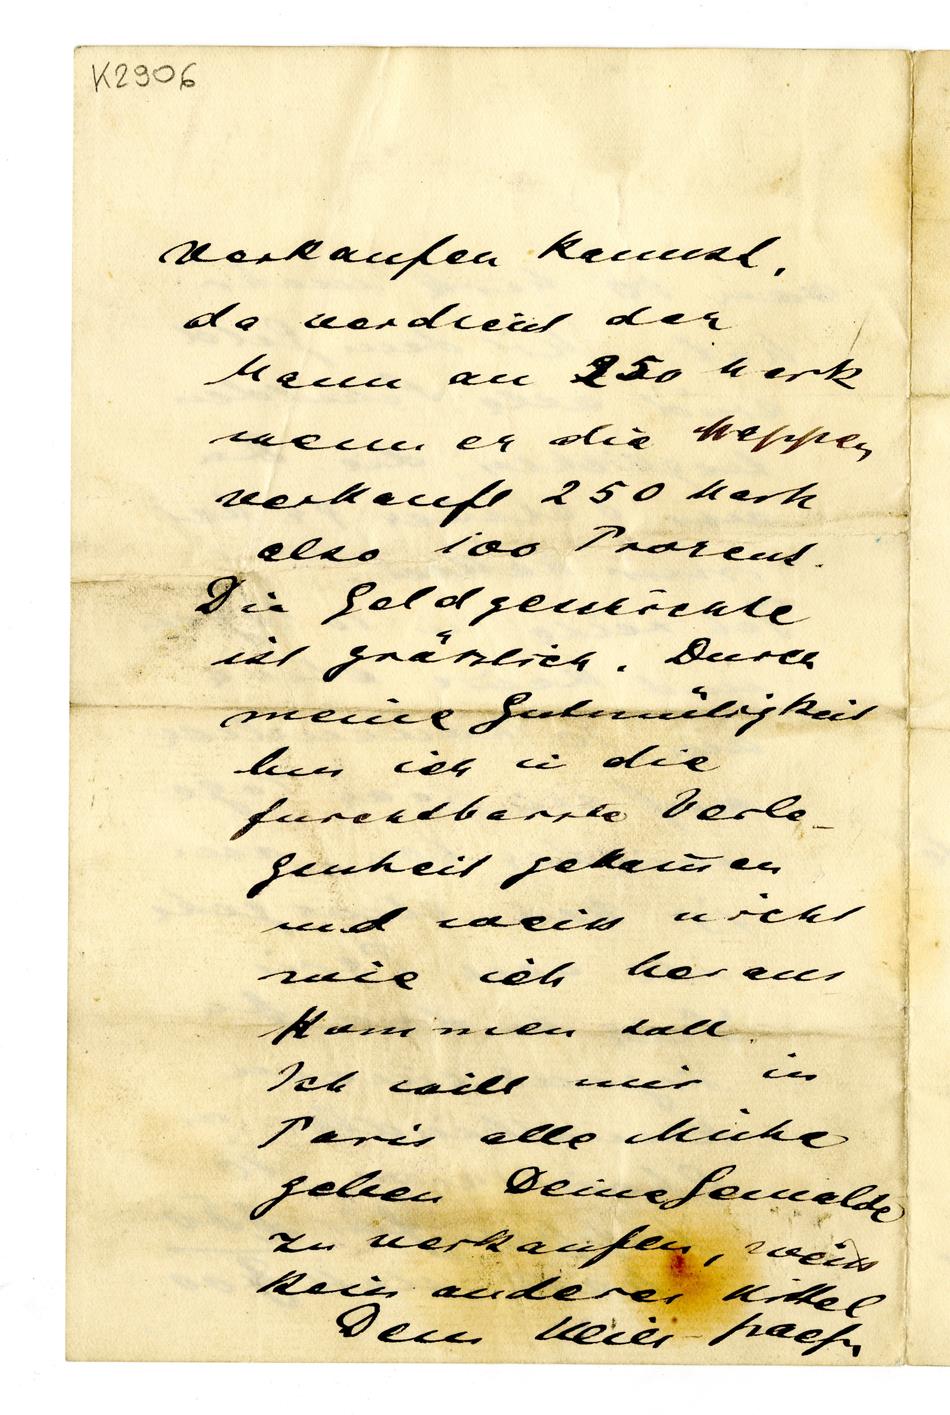 K2906
verkaufen kannst,
da verdient der
Mann an 250 Mark
wenn er die Mappen
verkauft 250 Mark
also 100 Prozent.
Die Geldgeschichte
ist gräszlich. Durch
meine Gutmütigkeit
bin ich in die
furchtbarste Verle-
genheit gekom̄en
und weiss nicht
wie ich heraus
kommen soll
Ich will mir in
Paris alle Mühe
geben Deine Gemalde
zu verkaufen, weiss
kein anderes Mittel
Dein